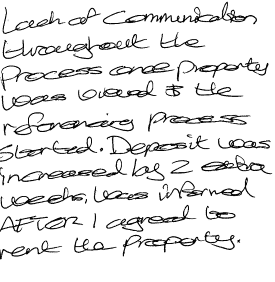 Lack of Communication
throughout the
Process once property
was
the
referencing process
started. Deposit was
increased by 2 extra
weeks, was informed
AFTER I agreed to
rent the property.